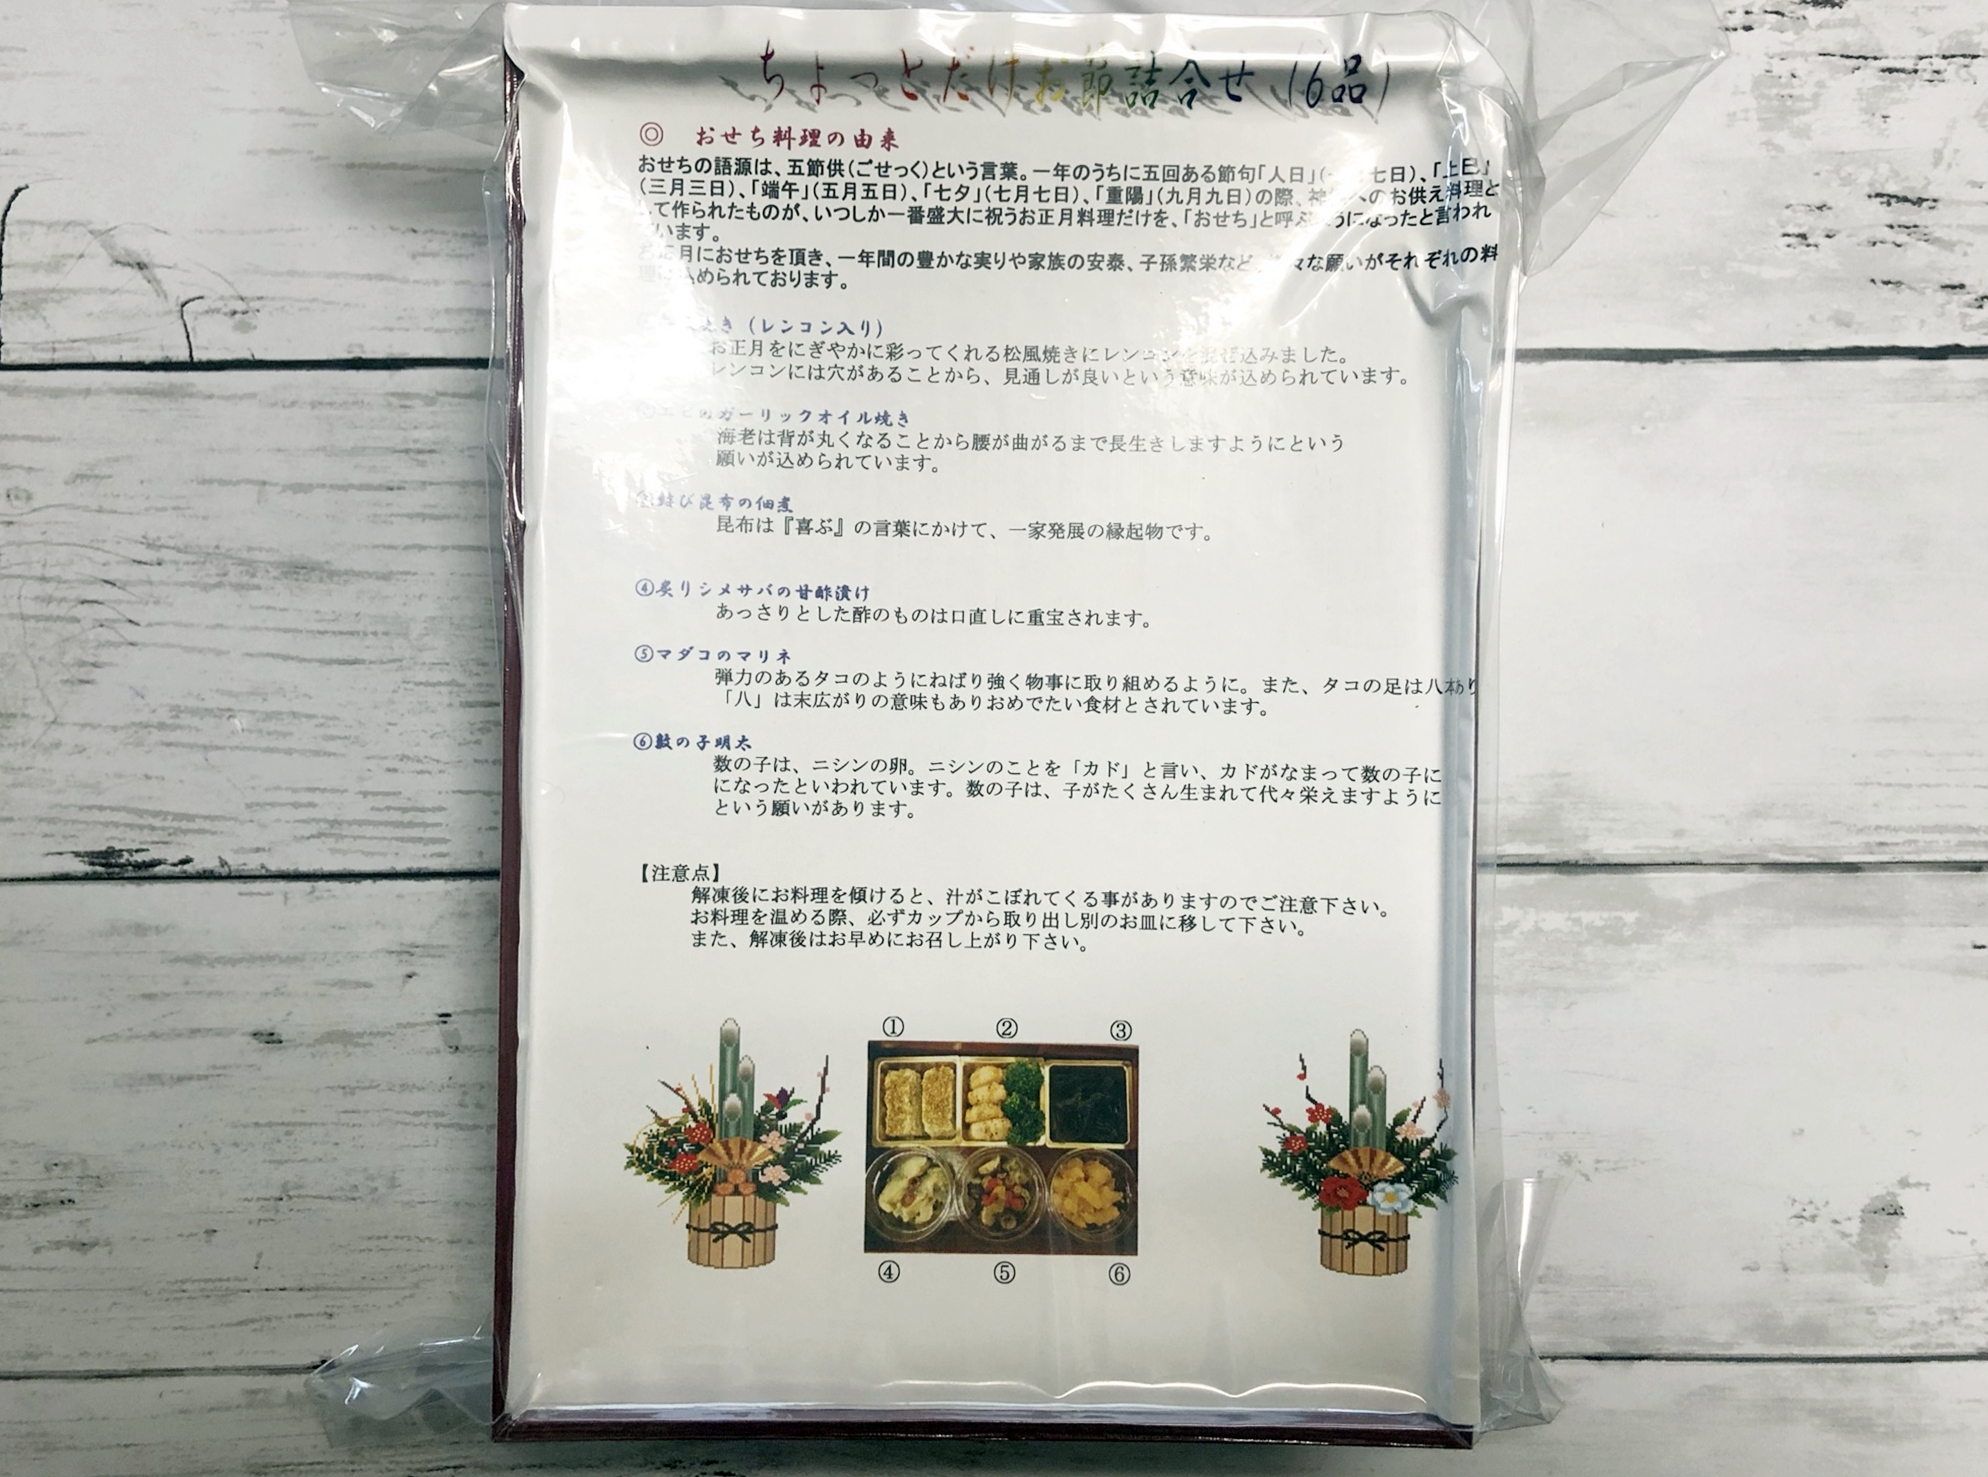 ちょっとだけお節詰合せ（6品）
◎ おせち料理の由来
おせちの語源は、五節供（ごせっく）という言葉。一年のうちに五回ある節句「人日」（ 七日）、「上巳」
（三月三日）、「端午」（五月五日）、「七夕」（七月七日）、「重陽」（九月九日）の際、神 へのお供え料理と
して作られたものが、いつしか一番盛大に祝うお正月料理だけを、「おせち」と呼ぶ うになったと言われ
ています。
お正月におせちを頂き、一年間の豊かな実りや家族の安泰、子孫繁栄など、 々な願いがそれぞれの料
理に込められております。
き（レンコン入り）
お正月をにぎやかに彩ってくれる松風焼きにレンコンを混ぜ込みました。
レンコンには穴があることから、見通しが良いという意味が込められています。
②エビのガーリックオイル焼き
海老は背が丸くなることから腰が曲がるまで長生きしますようにという
願いが込められています。
③結び昆布の佃煮
昆布は『喜ぶ』の言葉にかけて、一家発展の縁起物です。
④炙りシメサバの甘酢漬け
あっさりとした酢のものは口直しに重宝されます。
⑤マダコのマリネ
弾力のあるタコのようにねばり強く物事に取り組めるように。また、タコの足は八本あり
「八」は末広がりの意味もありおめでたい食材とされています。
⑥数の子明太
数の子は、ニシンの卵。ニシンのことを「カド」と言い、カドがなまって数の子に
になったといわれています。数の子は、子がたくさん生まれて代々栄えますように
という願いがあります。
【注意点】
解凍後にお料理を傾けると、汁がこぼれてくる事がありますのでご注意下さい。
お料理を温める際、必ずカップから取り出し別のお皿に移して下さい。
また、解凍後はお早めにお召し上がり下さい。
① ② ③
④ ⑤ ⑥